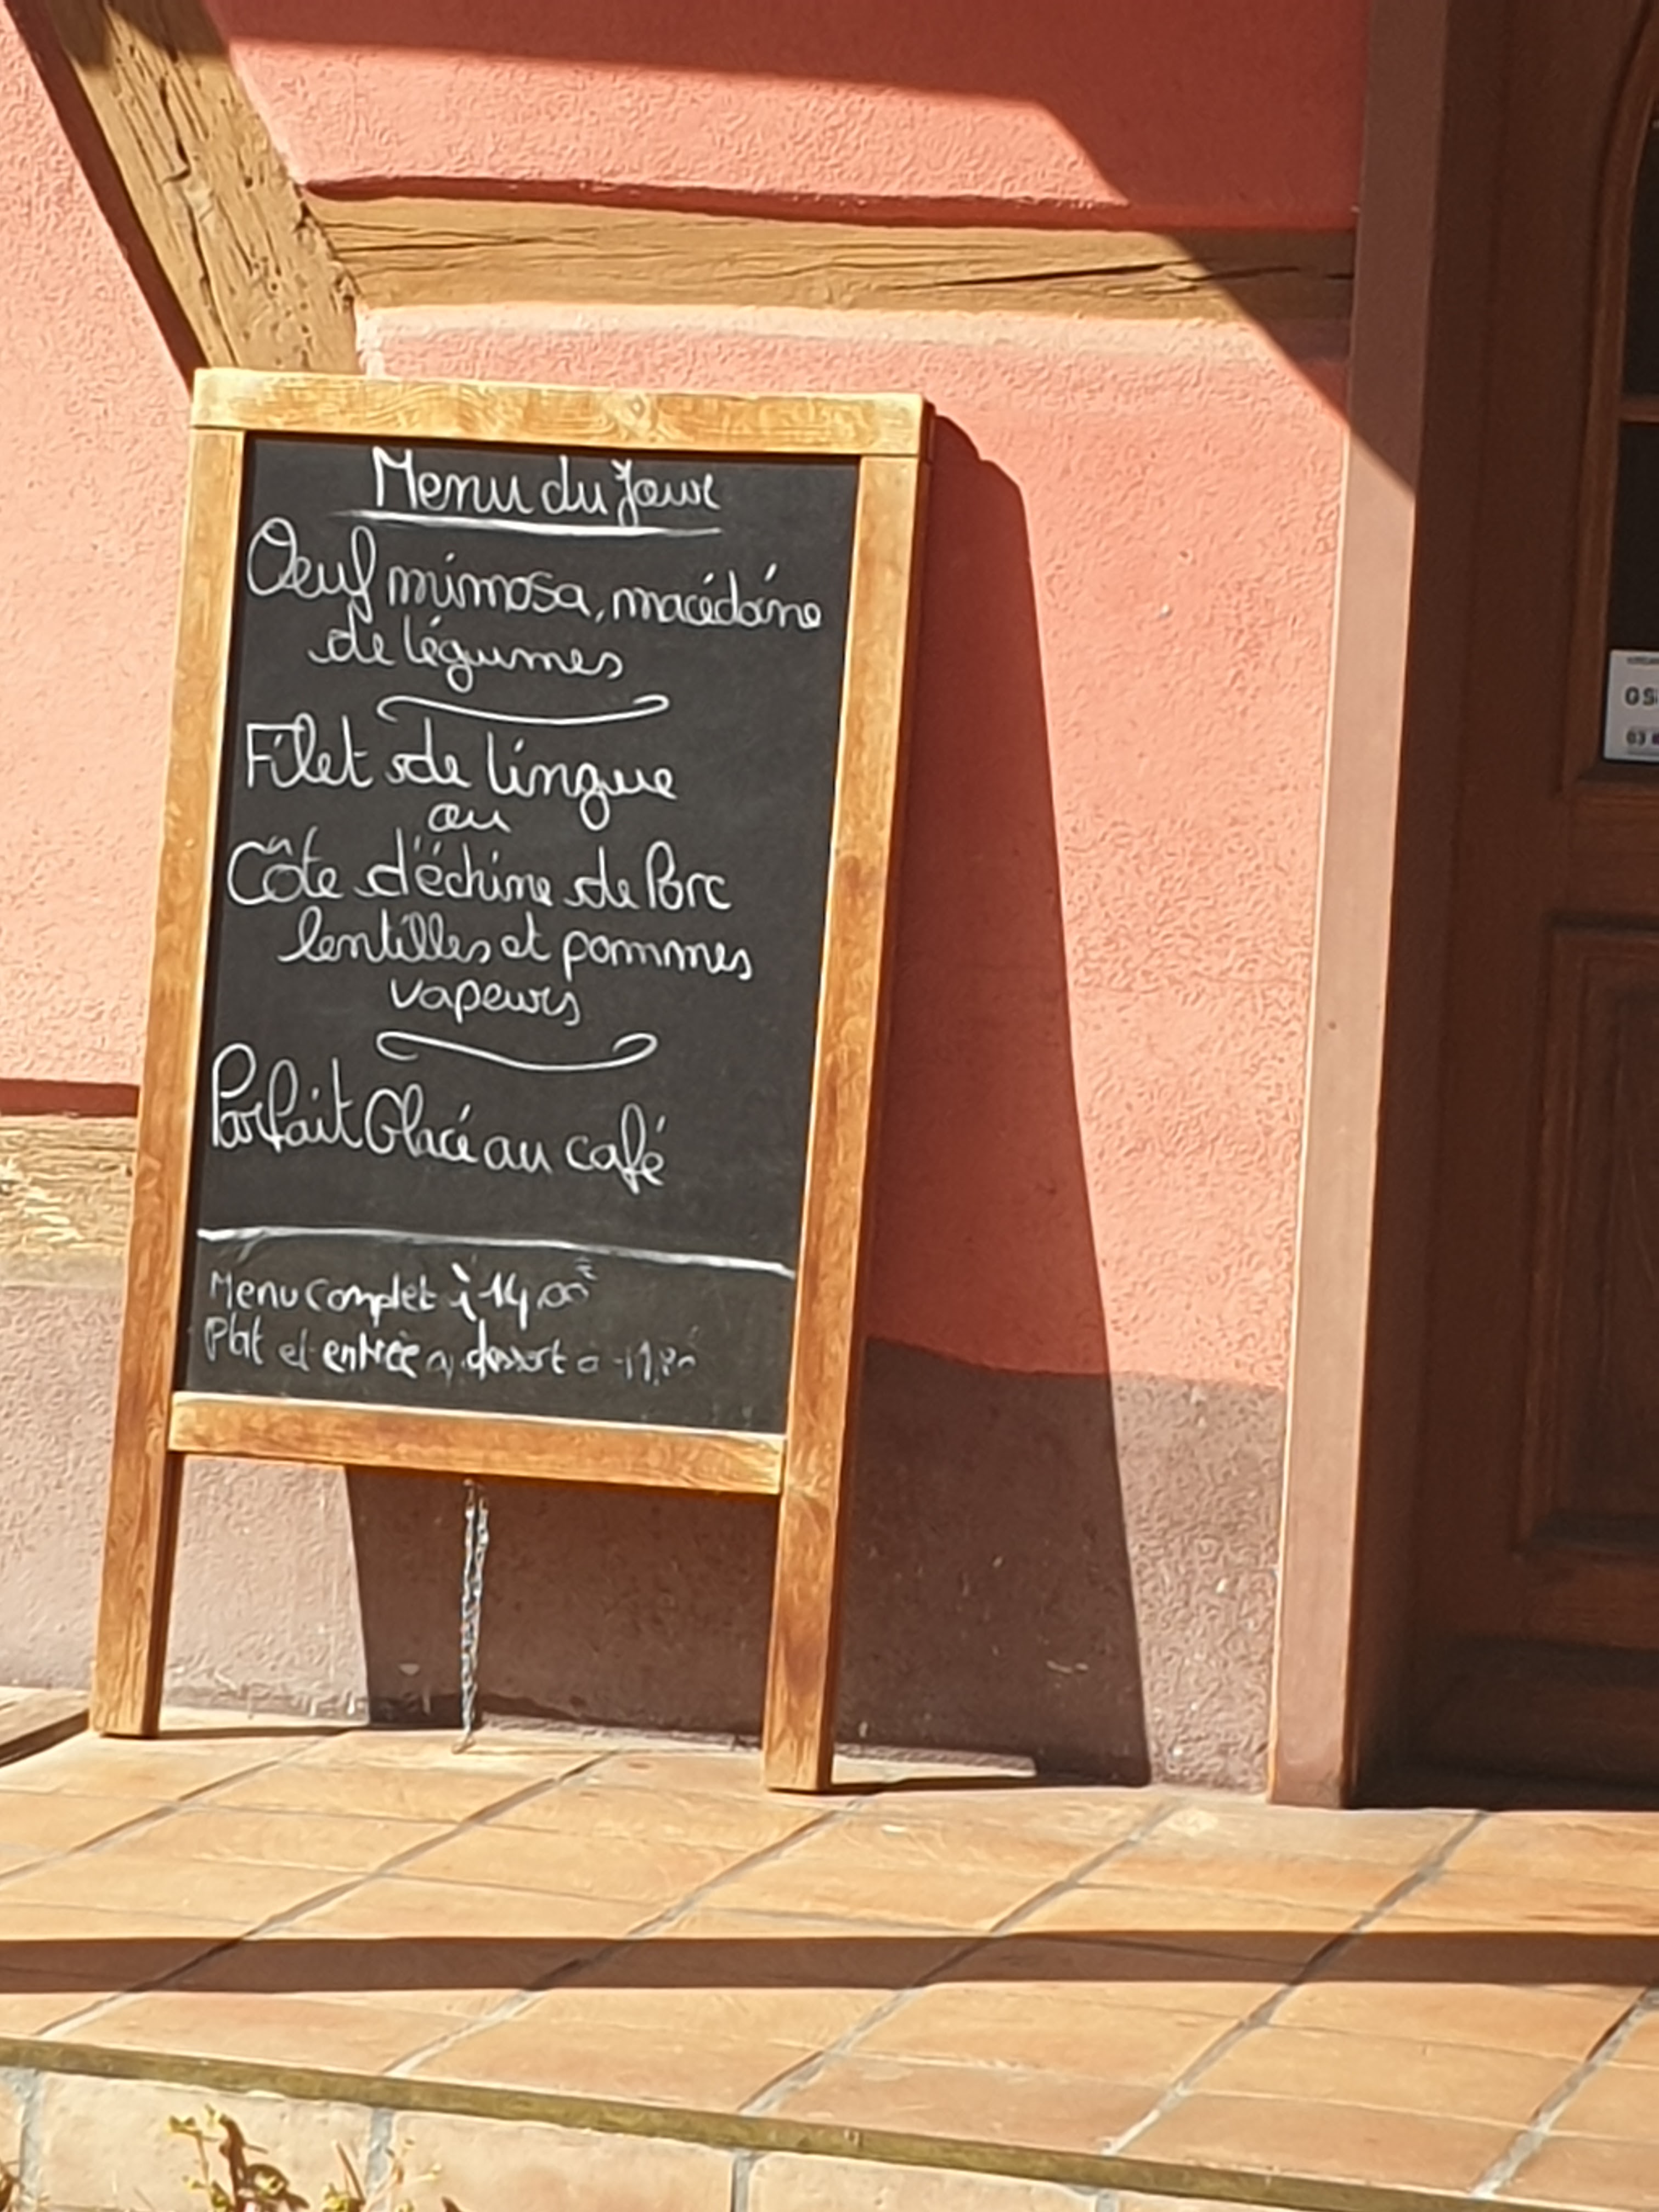 Menu du Jour
Oeuf mimosa, macédoine
de légumes
Filet de lingue
ou
Côte d'échine de Porc
lentilles et pommes
vapeurs
Parfait Glacé au café
Menu complet à 14,00€
Plat et entrée dessert